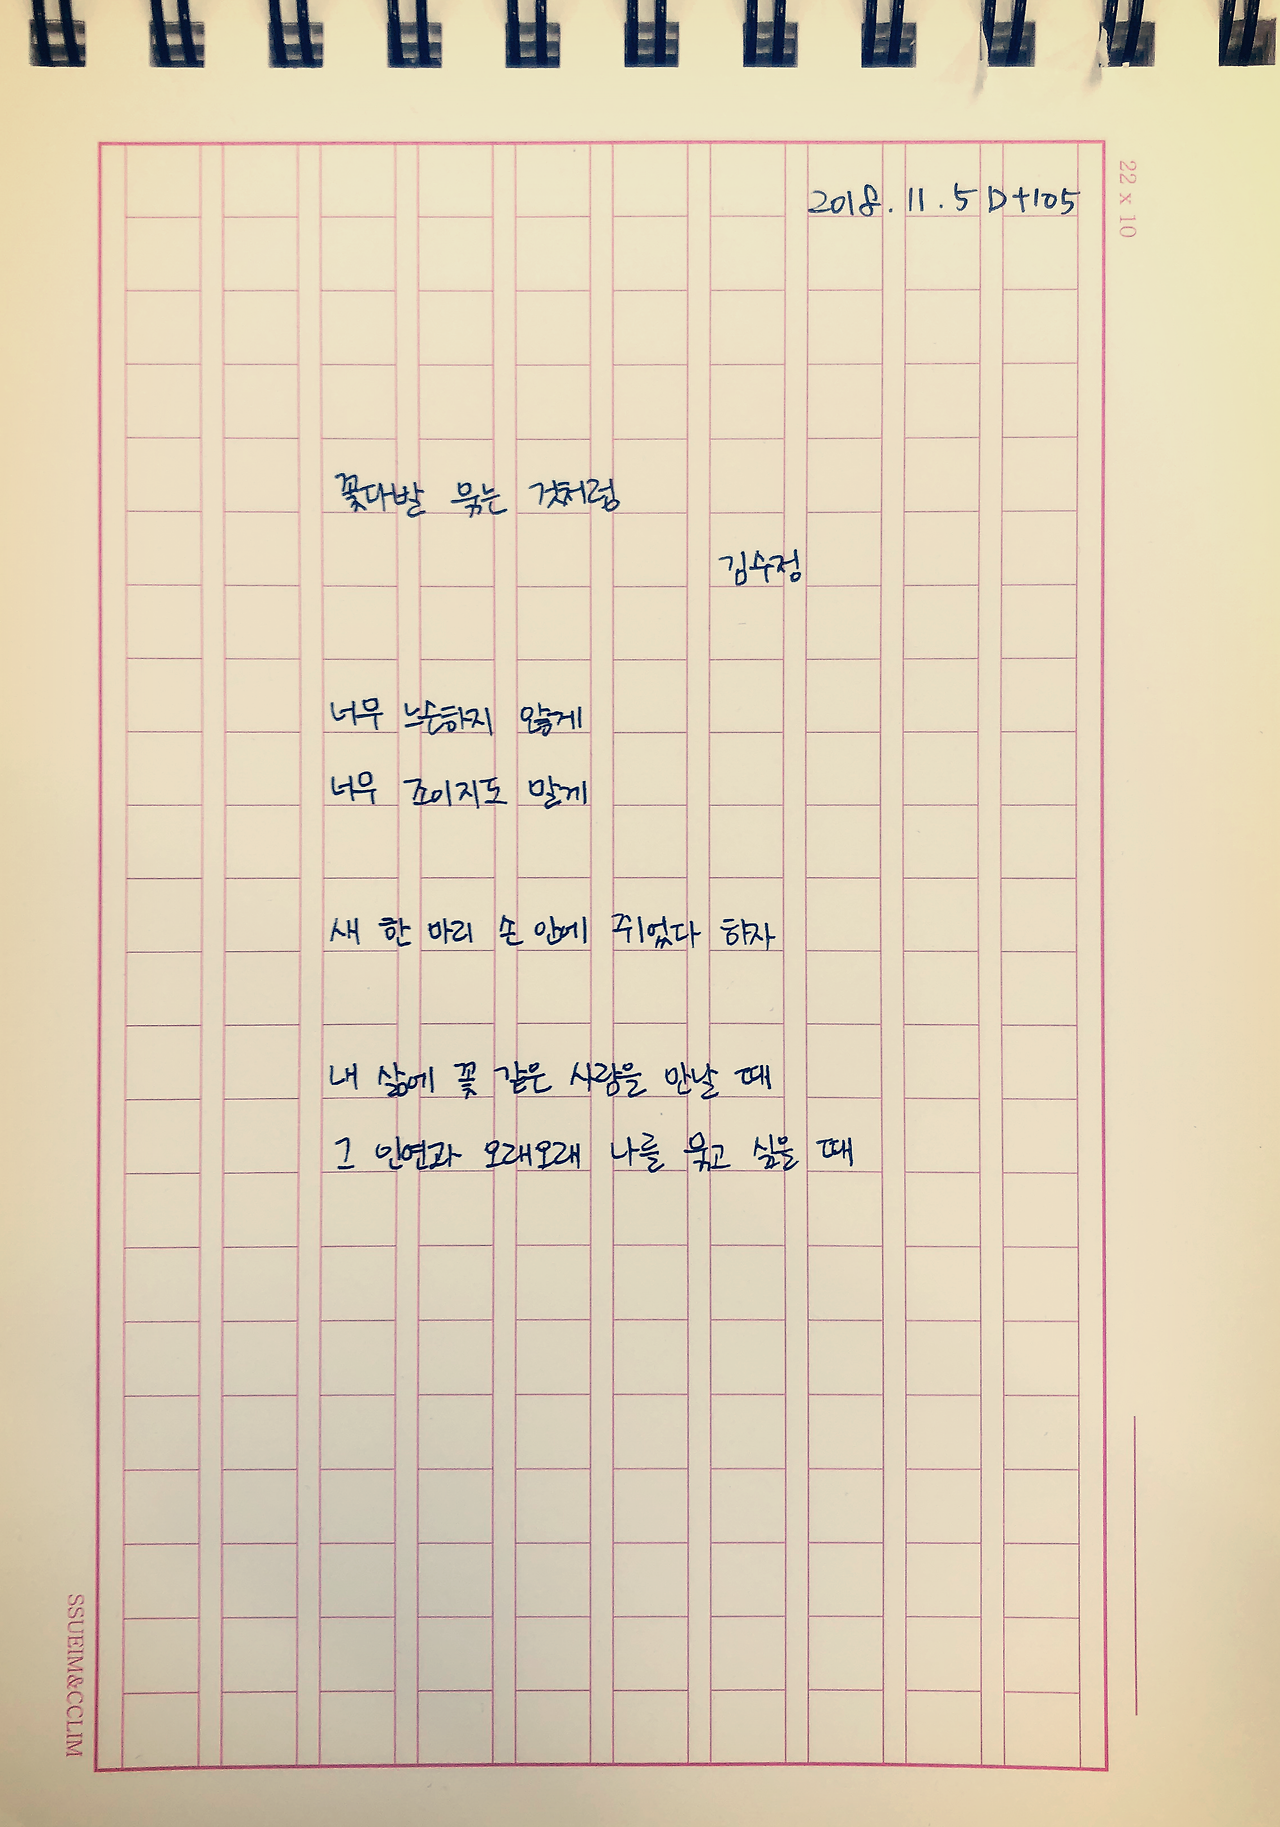 22 x 10
2018. 11. 5 D+105
꽃다발 묶는 것처럼
김수정
너무 느슨하지 않게
너무 조이지도 말게
새 한 마리 손 안에 쥐었다 하자
내 삶에 꽃 같은 사랑을 만날 때
그 인연과 오래오래 나를 묶고 싶을 때
SSUEIM&CCLIM